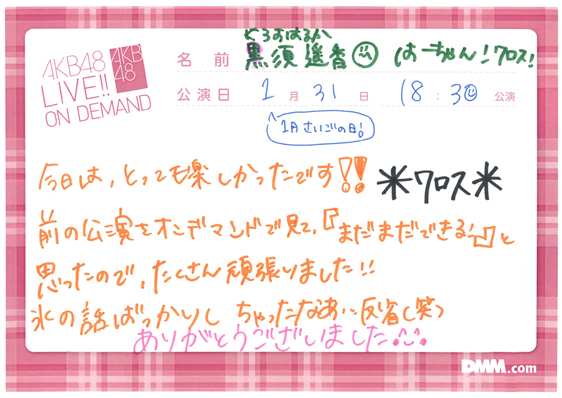 くろすはるか
AKB48 AKB48 名前 黒須遥香 はーちゃん!クロス!
LIVE!!
ON DEMAND 公演日 1月31日 18:30公演
1月さいごの日!
今日は、とっても楽しかったです!! *クロス*
前の公演をオンデマンドで見て、『まだまだできる!』と
思ったので、たくさん頑張りました!!
氷の話ばっかりしちゃったなあ…反省(笑)
ありがとうございました
DMM.com